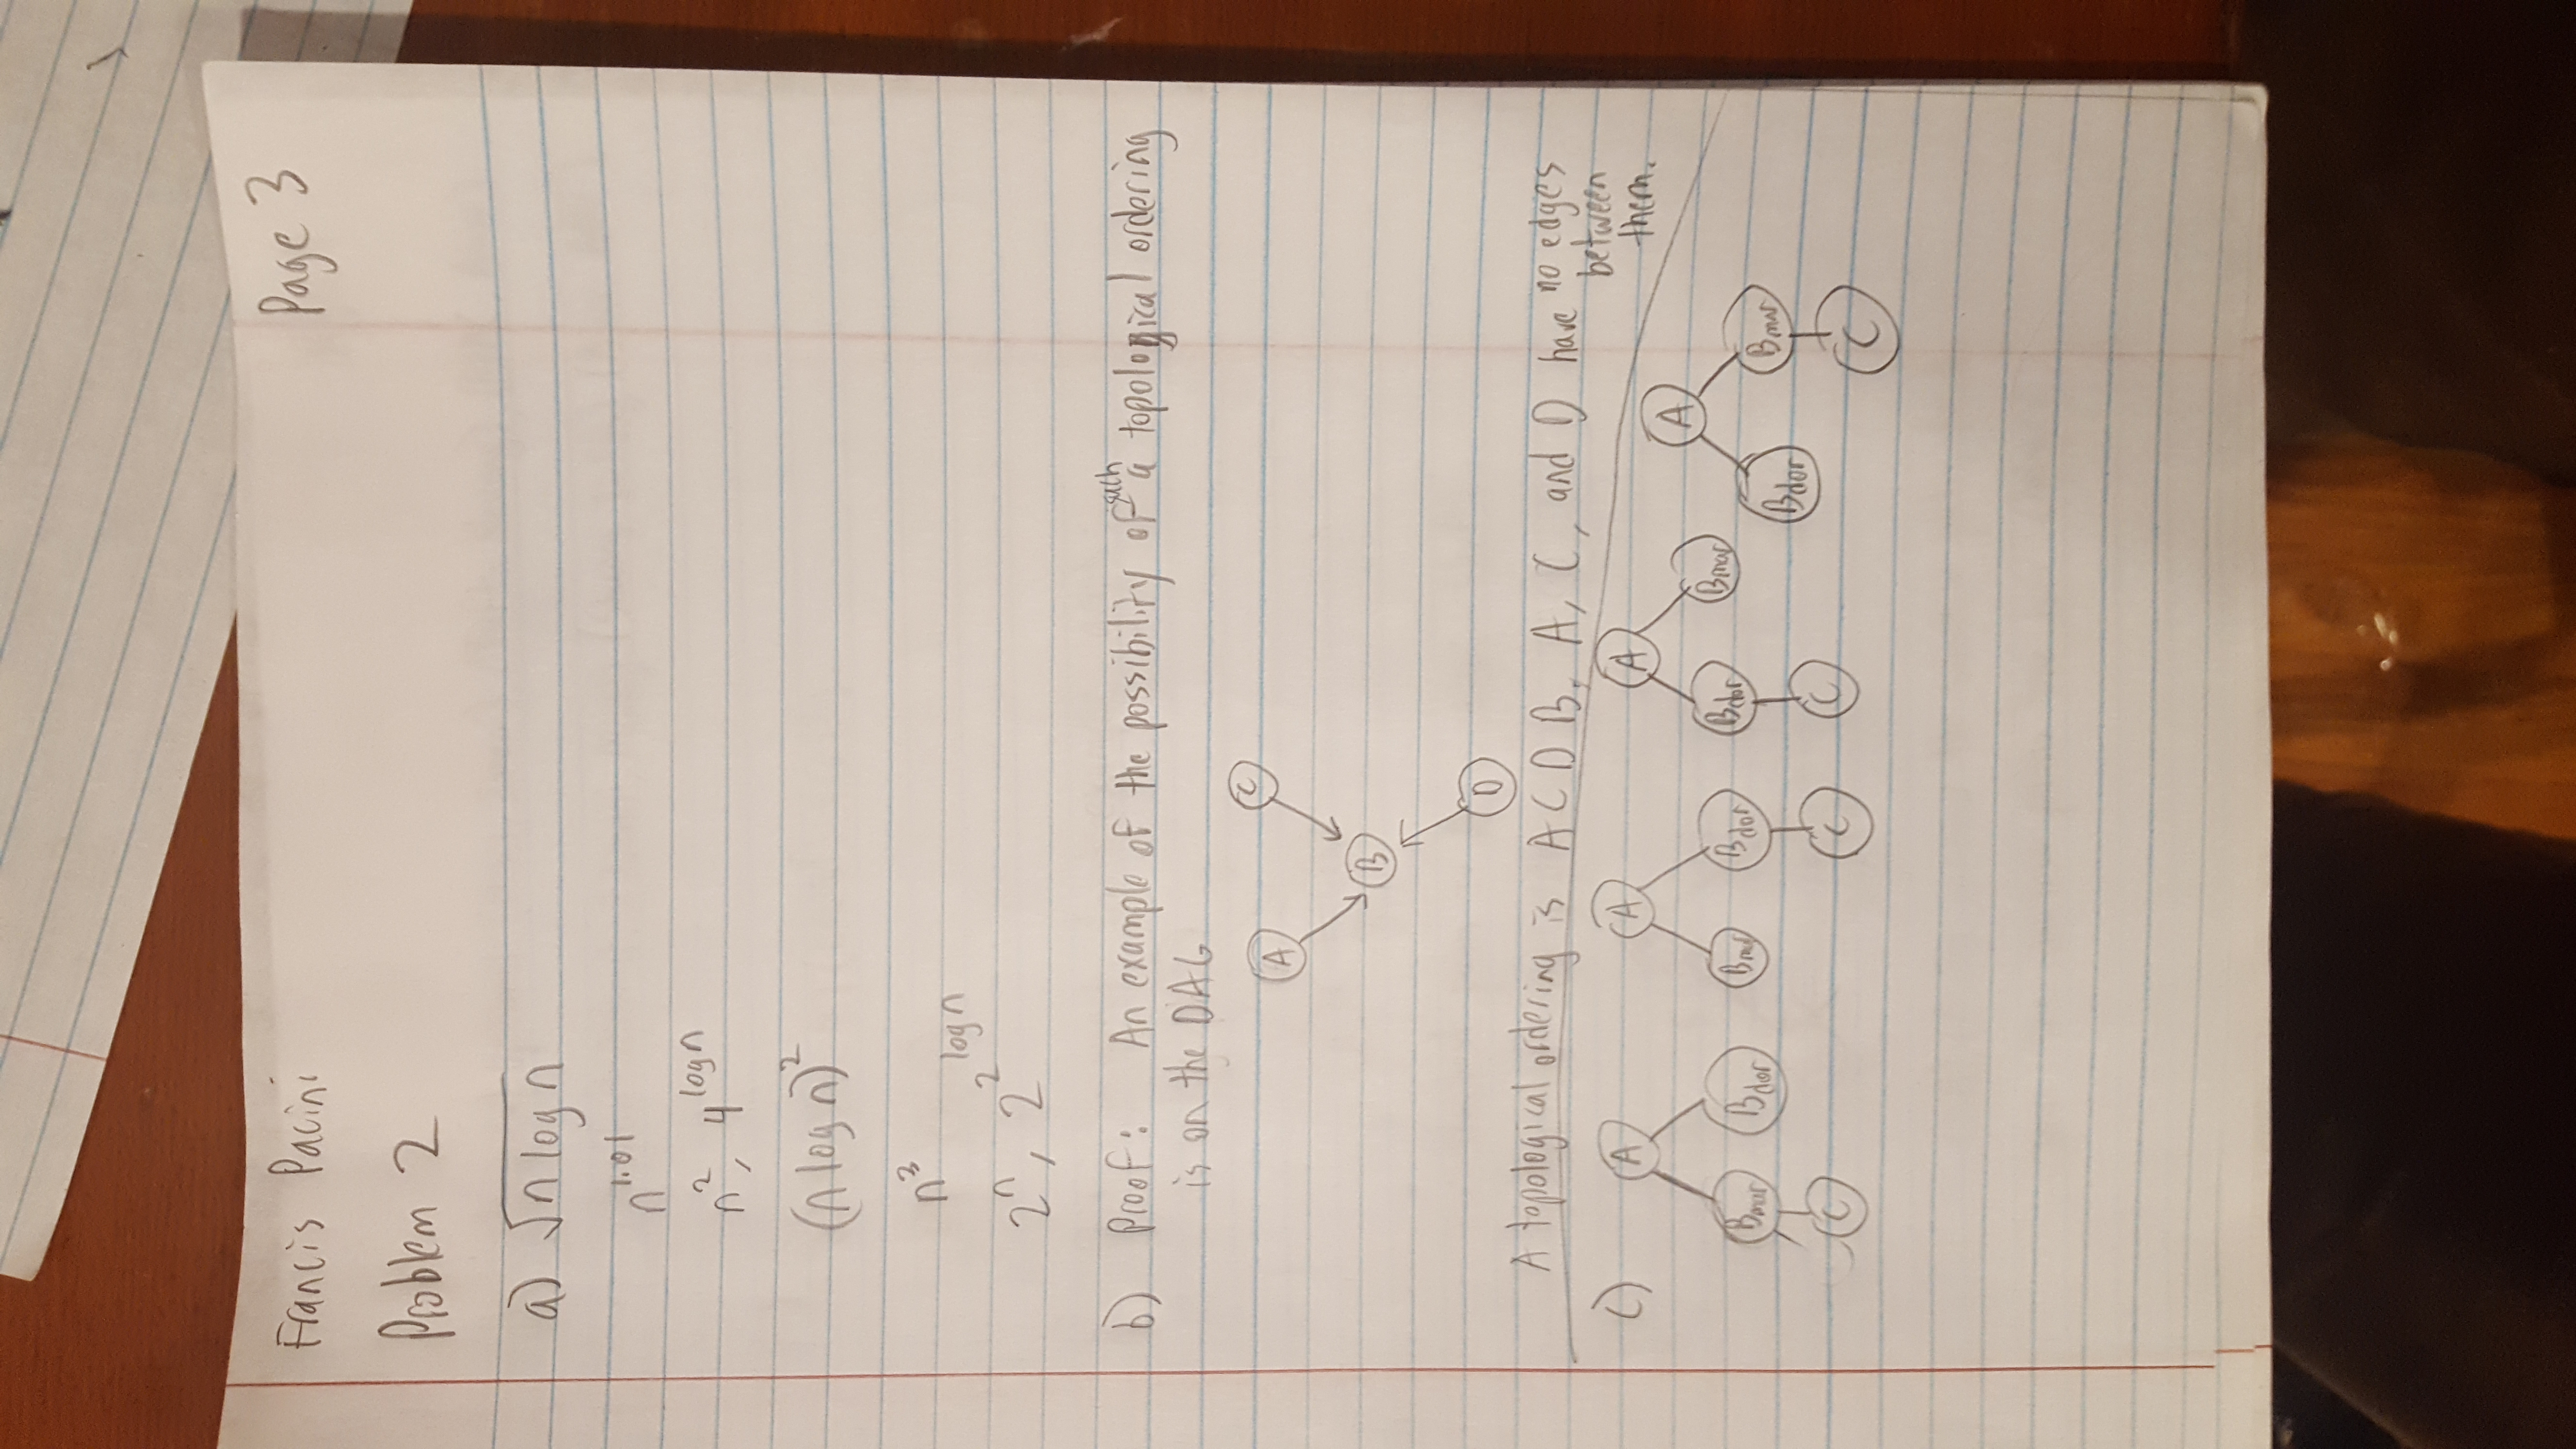 Francis Pacini Page 3
Problem 2
a) √(n log n)
n^1.01
n^2, 4^log n
(n log n)^2
n^3
2^n, 2^2^log n
b) Proof: An example of the possibility of such a topological ordering
is on the DAG
A C
B
D
A topological ordering is A C D B. A, C, and D have no edges
between
them.
c) A A A A
Bmar Bdor Bmar Bdor Bdor Bmar Bdor Bmar
C C C C